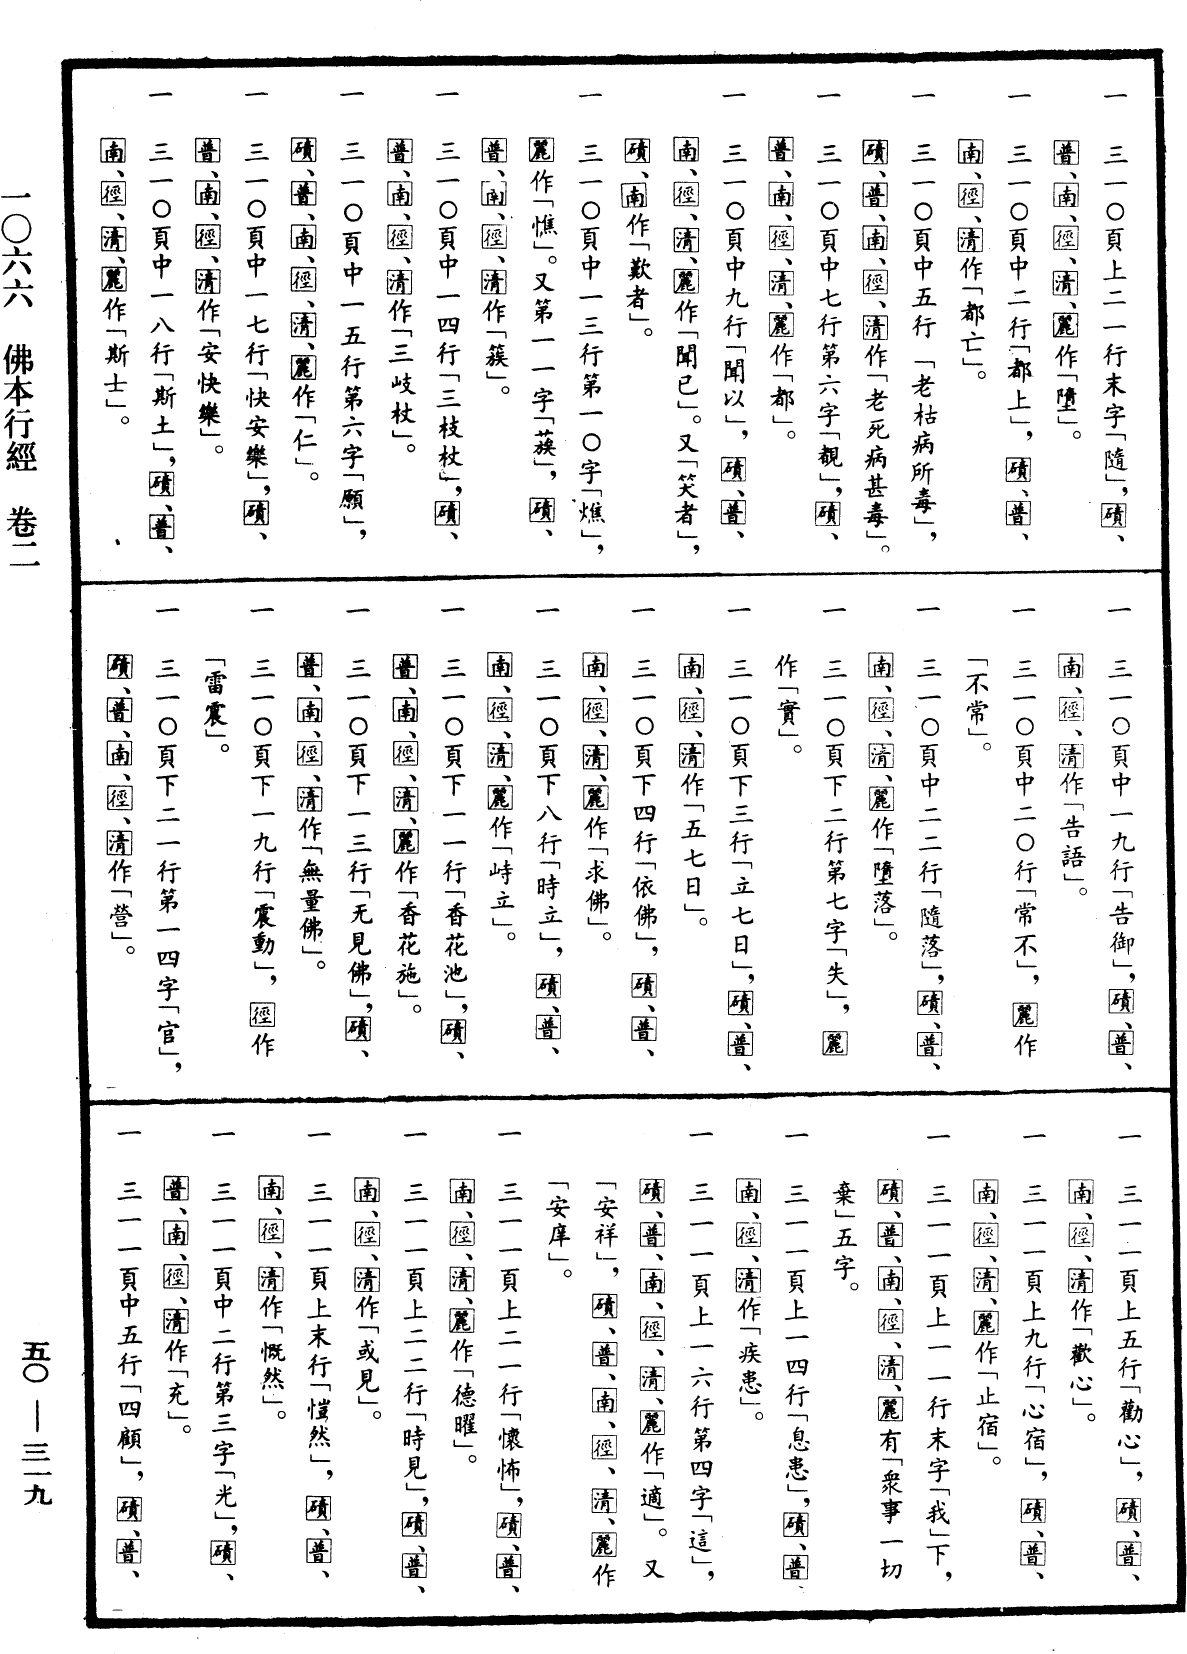 一　三一〇頁上二一行末字「隨」，磧、
普、南、徑、清、麗作「墮」。
一　三一〇頁中二行「都上」，磧、普、
南、徑、清作「都亡」。
一　三一〇頁中五行「老枯病所毒」，
磧、普、南、徑、清作「老死病甚毒」。
一　三一〇頁中七行第六字「覩」，磧、
普、南、徑、清、麗作「都」。
一　三一〇頁中九行「聞以」，磧、普、
南、徑、清、麗作「聞已」。又「笑者」，
磧、南作「歎者」。
一　三一〇頁中一三行第一〇字「燋」，
麗作「憔」。又第一一字「蔟」，磧、
普、南、徑、清作「簇」。
一　三一〇頁中一四行「三枝杖」，磧、
普、南、徑、清作「三岐杖」。
一　三一〇頁中一五行第六字「願」，
磧、普、南、徑、清、麗作「仁」。
一　三一〇頁中一七行「快安樂」，磧、
普、南、徑、清作「安快樂」。
一　三一〇頁中一八行「斯土」，磧、普、
南、徑、清、麗作「斯士」。
一　三一〇頁中一九行「告御」，磧、普、
南、徑、清作「告語」。
一　三一〇頁中二〇行「常不」，麗作
「不常」。
一　三一〇頁中二二行「隨落」，磧、普、
南、徑、清、麗作「墮落」。
一　三一〇頁下二行第七字「失」，麗
作「實」。
一　三一〇頁下三行「立七日」，磧、普、
南、徑、清作「五七日」。
一　三一〇頁下四行「依佛」，磧、普、
南、徑、清、麗作「求佛」。
一　三一〇頁下八行「時立」，磧、普、
南、徑、清、麗作「峙立」。
一　三一〇頁下一一行「香花池」，磧、
普、南、徑、清、麗作「香花施」。
一　三一〇頁下一三行「无見佛」，磧、
普、南、徑、清作「無量佛」。
一　三一〇頁下一九行「震動」，徑作
「雷震」。
一　三一〇頁下二一行第一四字「官」，
磧、普、南、徑、清作「營」。
一　三一一頁上五行「勸心」，磧、普、
南、徑、清作「歡心」。
一　三一一頁上九行「心宿」，磧、普、
南、徑、清、麗作「止宿」。
一　三一一頁上一一行末字「我」下，
磧、普、南、徑、清、麗有「衆事一切
棄」五字。
一　三一一頁上一四行「息患」，磧、普、
南、徑、清作「疾患」。
一　三一一頁上一六行第四字「這」，
磧、普、南、徑、清、麗作「適」。又
「安祥」，磧、普、南、徑、清、麗作
「安庠」。
一　三一一頁上二一行「懷怖」，磧、普、
南、徑、清、麗作「德曜」。
一　三一一頁上二二行「時見」，磧、普、
南、徑、清作「或見」。
一　三一一頁上末行「愷然」，磧、普、
南、徑、清作「慨然」。
一　三一一頁中二行第三字「光」，磧、
普、南、徑、清作「充」。
一　三一一頁中五行「四顧」，磧、普、
一〇六六　佛本行經　卷二
五〇——三一九